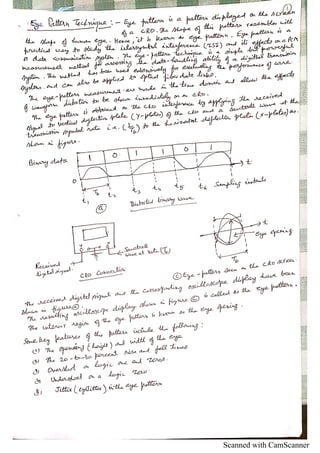 Eye Pattern Technique :- Eye pattern is a pattern displayed on the screen
of a CRO. The shape of this pattern resembles with
the shape of human eye. Hence, it is known as eye pattern. Eye pattern is a
practical way to study the intersymbol interference (ISI) and its effects on a
data communication system. The eye-pattern technique is a simple but powerful
measurement method for assessing the data-handling ability of a digital transmission
system. This method has been used extensively for evaluating the performance of wire
systems and can also be applied to optical fiber data links.
The eye-pattern measurement are made in the time domain and allow the effects
of waveform distortion to be shown immediately on a CRO.
The eye pattern is obtained on the CRO by applying the received
signal to vertical deflection plates (Y-plates) of the CRO and a sawtooth wave at the
transmission symbol rate i.e. (1/Tb) to the horizontal deflection plates (X-plates) as
shown in figure.
Binary data
1 0 1 1 0 1
0
Tb
t1 t2 t3 t4 t5 t6 Sampling instants
(a) Distorted binary wave
t
Eye opening
t
Tb
Received
digital signal
Sawtooth
wave at rate (1/Tb)
CRO Connection
(c) Eye-pattern seen on the CRO screen
The received digital signal and the corresponding oscilloscope display have been
shown in figure
The resulting oscilloscope display shown in figure (c) is called as the eye pattern.
The interior region of the eye pattern is known as the eye opening.
Some key features of this pattern include the following:
(1) The opening (height) and width of the eye
(2) The 20-to-80 percent rise and fall times
(3) Overshoot on logic one and zeros
(4) Undershoot on a logic zero
(5) Jitter in the eye pattern
Scanned with CamScanner